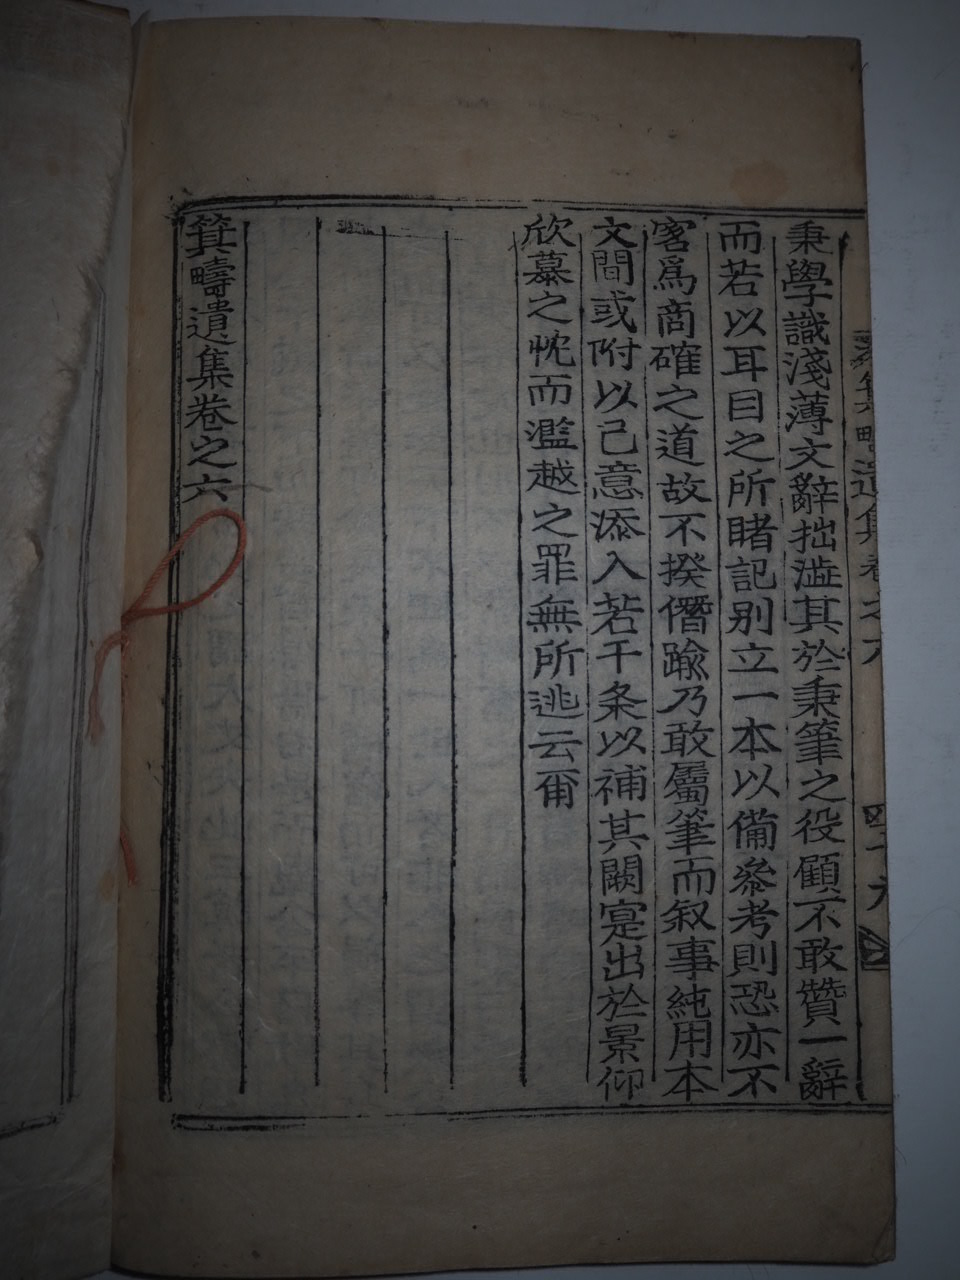 秉學識淺薄文辭拙澁其於秉筆之役顧不敢贊一辭
而若以耳目之所睹記別立一本以備參考則恐亦不
害爲商確之道故不揆僭踰乃敢屬筆而叙事純用本
文間或附以己意添入若干条以補其闕寔出於景仰
欣慕之忱而濫越之罪無所逃云爾
箕疇遺集卷之六